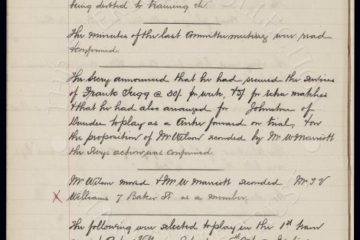 being debited to training a/c.
The minutes of the last Committee meeting were read
& confirmed.
The Secy announced that he had secured the services
of Frank Trigg @ 30/- pr week & 5/- pr extra matches
& that he had also arranged for Johnstone of
Dundee to play as a on trial, & on
the proposition of Mr Wilson seconded by Mr W Marriott
the Secys action was confirmed.
Mr Wilson moved & Mr W Marriott seconded Mr T V
x Williams 7 Baker St as a member.
The following were selected to play in the 1st team